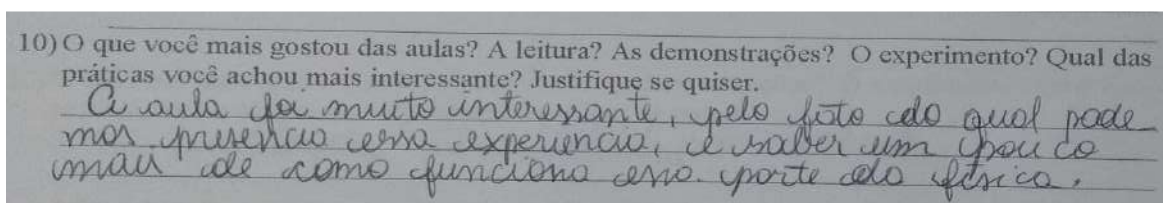 10) O que você mais gostou das aulas? A leitura? As demonstrações? O experimento? Qual das
práticas você achou mais interessante? Justifique se quiser.
A aula foi muito interessante, pelo fato do qual pode
mos presencia essa experiencia, e saber um pouco
mais de como funciona essa parte da física.